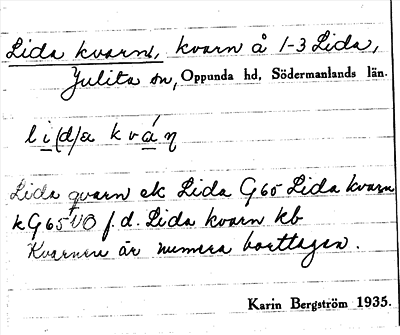 Lida kvarn, kvarn å 1-3 Lida,
Julita sn, Oppunda hd, Södermanlands län.
li(d)a kván
Lida qvarn ek Lida G65 Lida kvarn
kG65NO f.d. Lida kvarn kb
Kvarnen är numera borttagen.
Karin Bergström 1935.